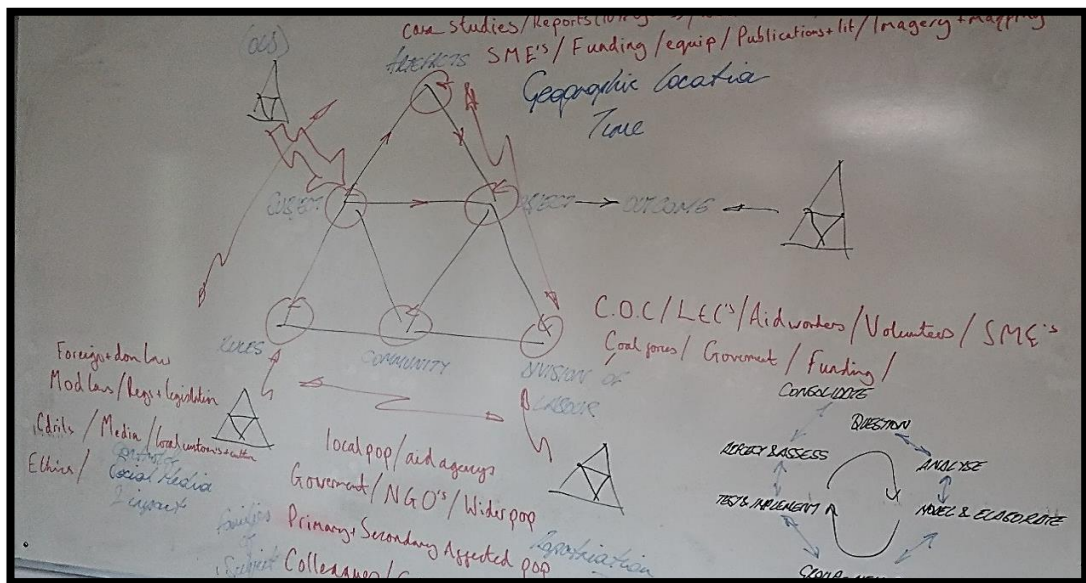 case studies / Reports
(OLS)
ARTEFACTS SME's / Funding / equip / Publications + lit / Imagery + mapping
Geographic Location
Time
SUBJECT
OBJECT → OUTCOME
RULES
COMMUNITY
DIVISION OF
LABOUR
C.O.C / LEC's / Aid workers / Volunteers / SME's
Goverment / Funding /
Foreign + dom law
Mod laws / Regs + legislation
/ Media / local customs + culture
Ethics /
Social Media
impact
local pop / aid agencys
Goverment / NGO's / Wider pop
families
of
Subject
Primary + Secondary Affected pop
Colleagues /
CONSOLIDATE
QUESTION
REFLECT & ASSESS
ANALYSE
TEST & IMPLEMENT
MODEL & ELABORATE